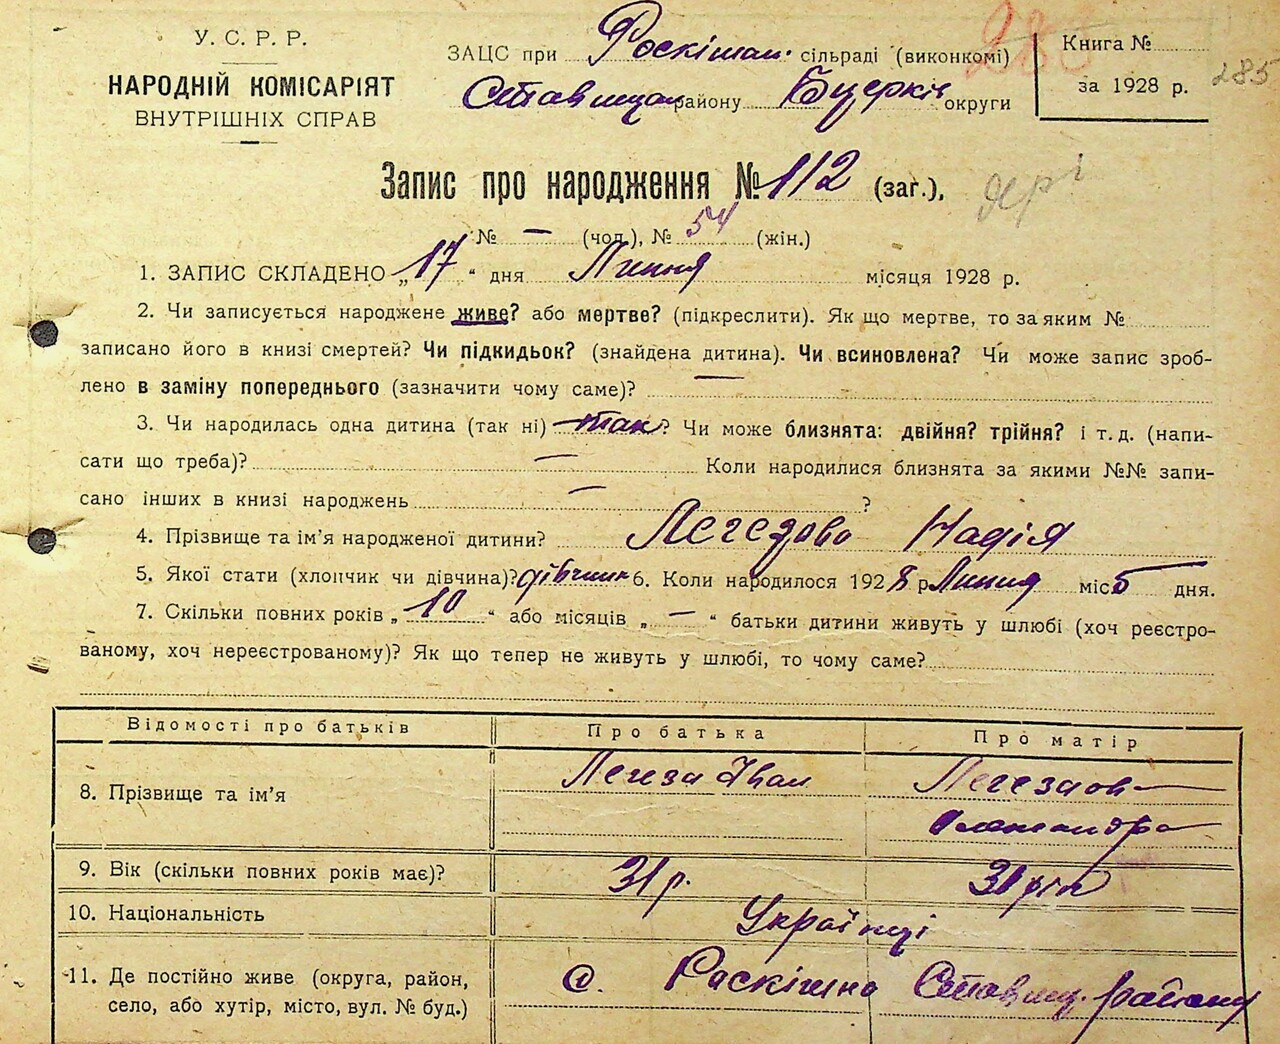 У. С. Р. Р.
НАРОДНІЙ КОМІСАРІЯТ
ВНУТРІШНІХ СПРАВ
ЗАЦС при Роскішан. сільраді (виконкомі)
Ставищан району Бцерків округи
Книга №
за 1928 р.
285
285
Запис про народження № 112 (заг.),
№ — (чол.), № 54 (жін.)
1. ЗАПИС СКЛАДЕНО „17“ дня Липня місяця 1928 р.
2. Чи записується народжене живе? або мертве? (підкреслити). Як що мертве, то за яким №
записано його в книзі смертей? Чи підкидьок? (знайдена дитина). Чи всиновлена? Чи може запис зроб-
лено в заміну попереднього (зазначити чому саме)? —
3. Чи народилась одна дитина (так ні) так? Чи може близнята: двійня? трійня? і т. д. (напи-
сати що треба)? — Коли народилися близнята за якими №№ запи-
сано інших в книзі народжень — ?
4. Прізвище та ім'я народженої дитини? Легезова Надія
5. Якої стати (хлопчик чи дівчина)? дівчина 6. Коли народилось 1928 р. Липня міс. 5 дня.
7. Скільки повних років „10“ або місяців „—“ батьки дитини живуть у шлюбі (хоч реєстро-
ваному, хоч нереєстрованому)? Як що тепер не живуть у шлюбі, то чому саме?
Відомості про батьків Про батька Про матір
8. Прізвище та ім'я Легеза Іван Легезова
Олександра
9. Вік (скільки повних років має)? 31 р. 31 рік
10. Національність Українці
11. Де постійно живе (округа, район, с. Раскішна Ставищ. району
село, або хутір, місто, вул. № буд.)